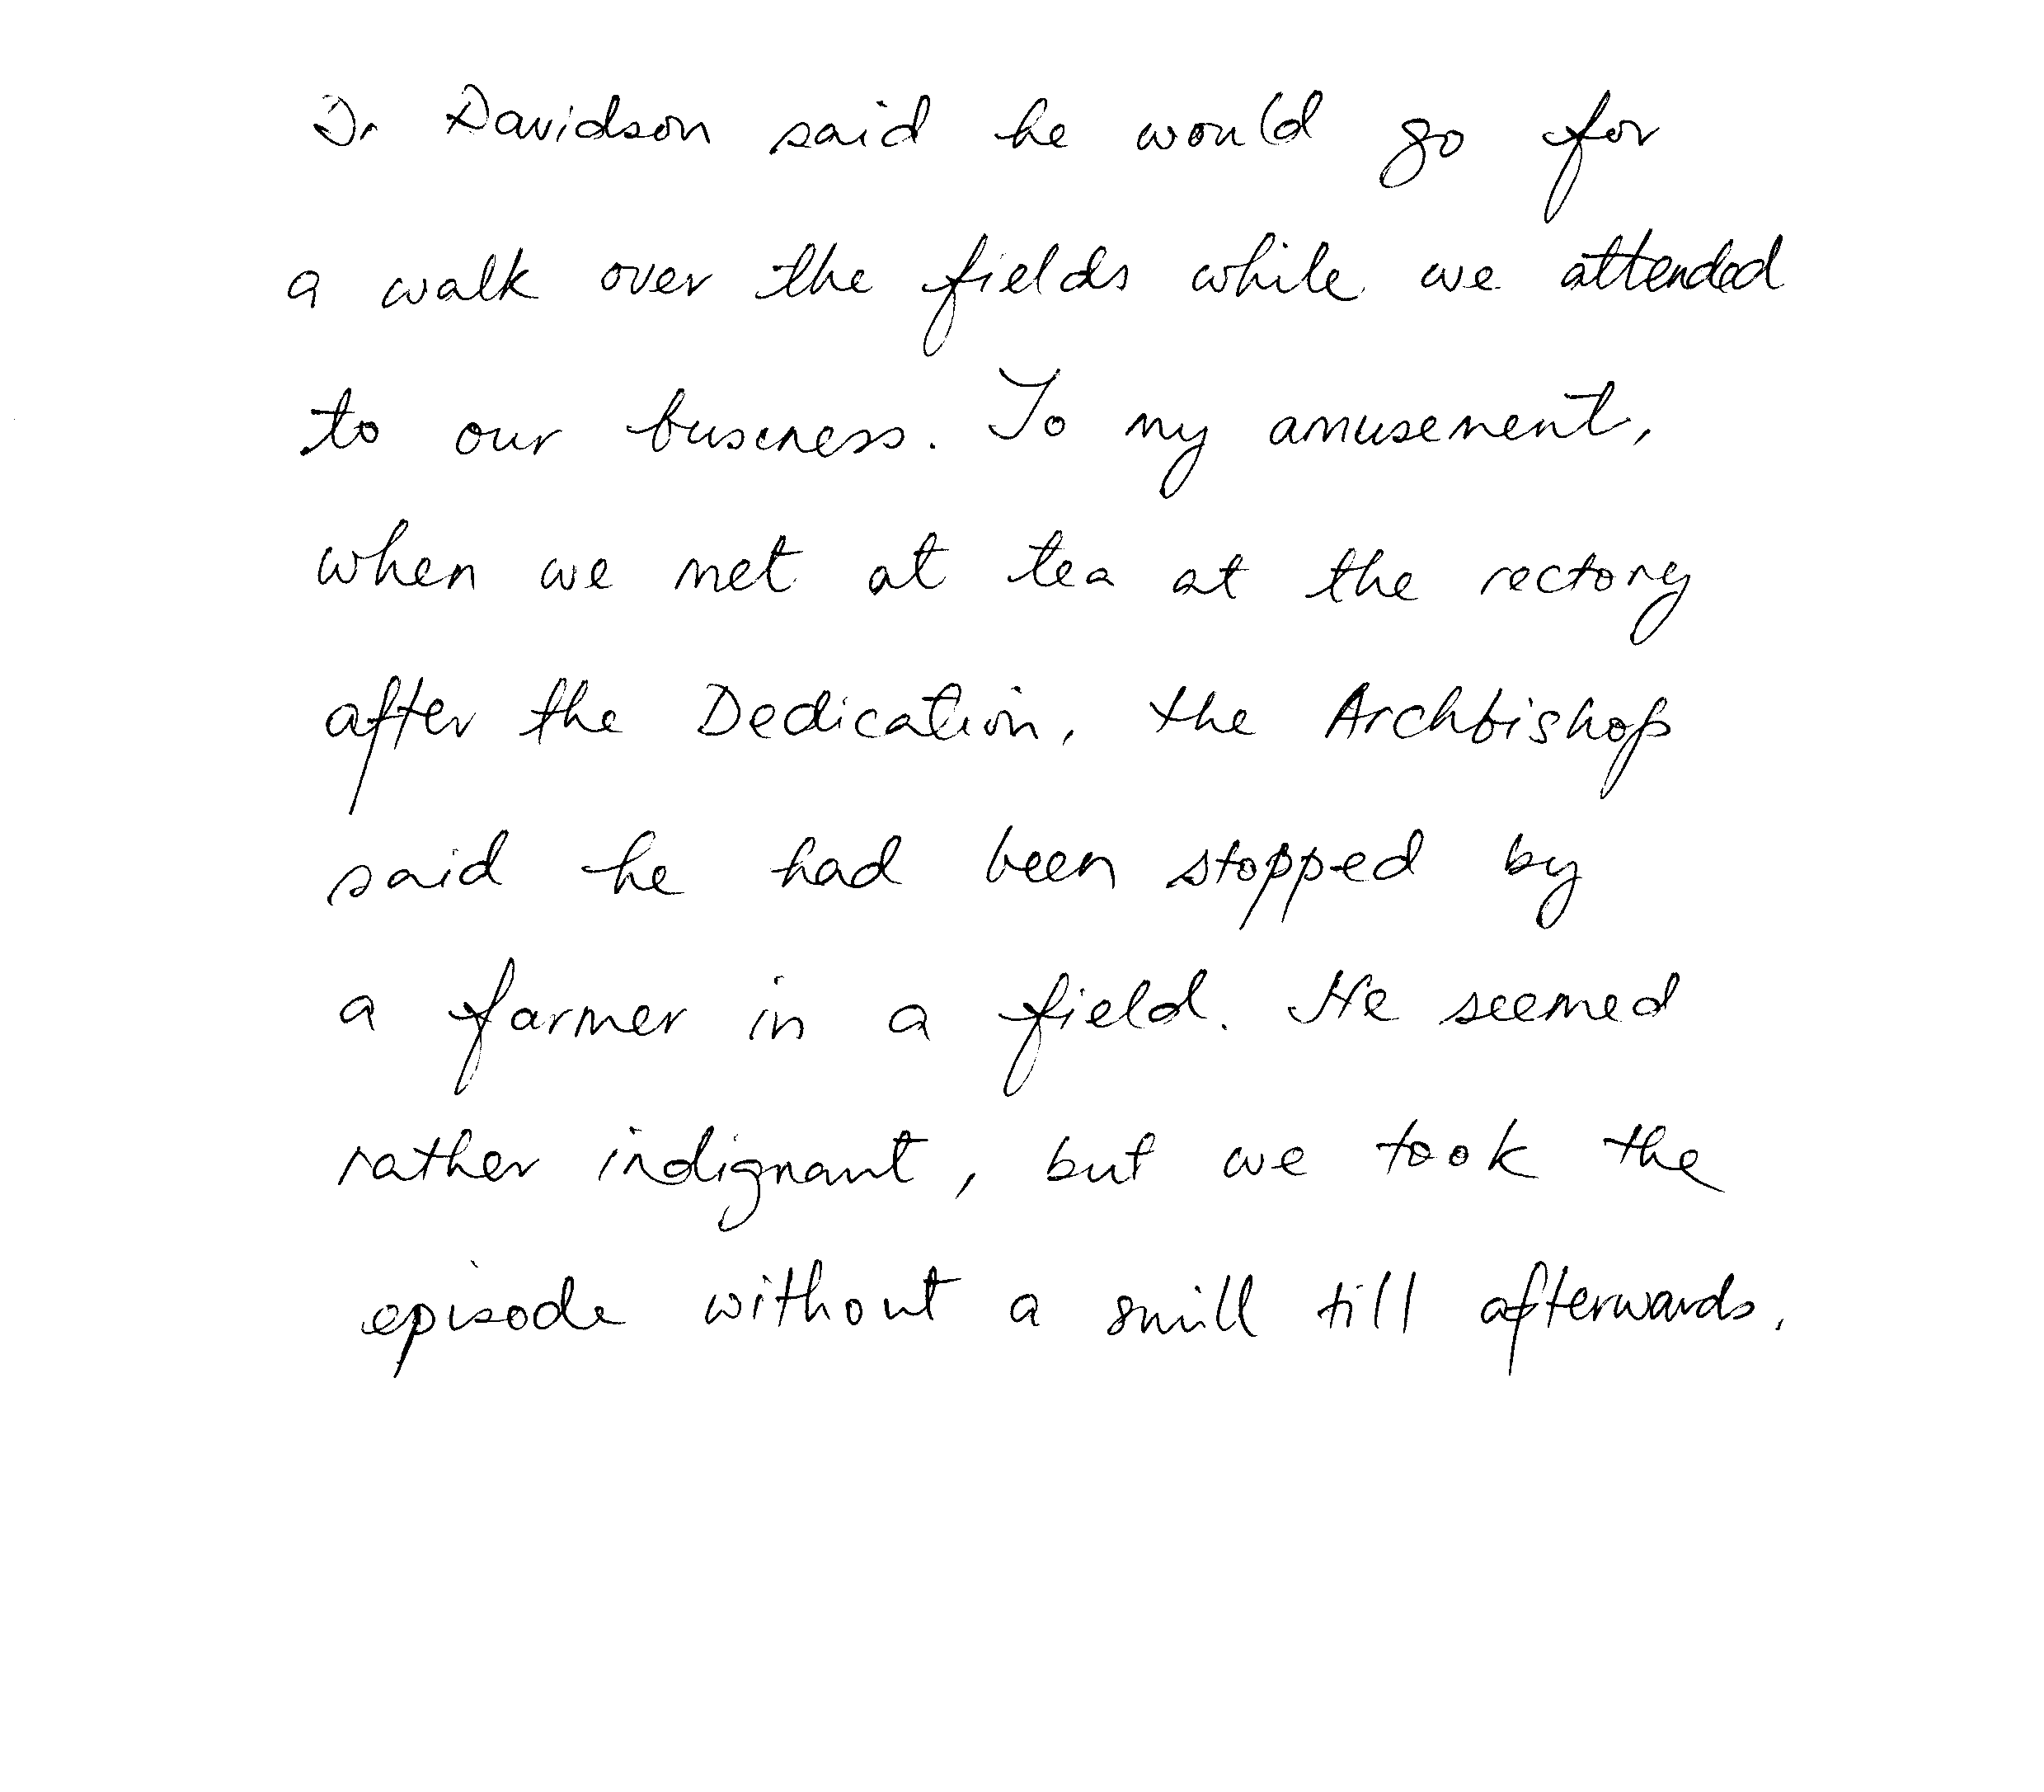 Dr Davidson said he would go for
a walk over the fields while we attended
to our business. To my amusement,
when we met at tea at the rectory
after the Dedication, the Archbishop
said he had been stopped by
a farmer in a field. He seemed
rather indignant, but we took the
episode without a smile till afterwards.